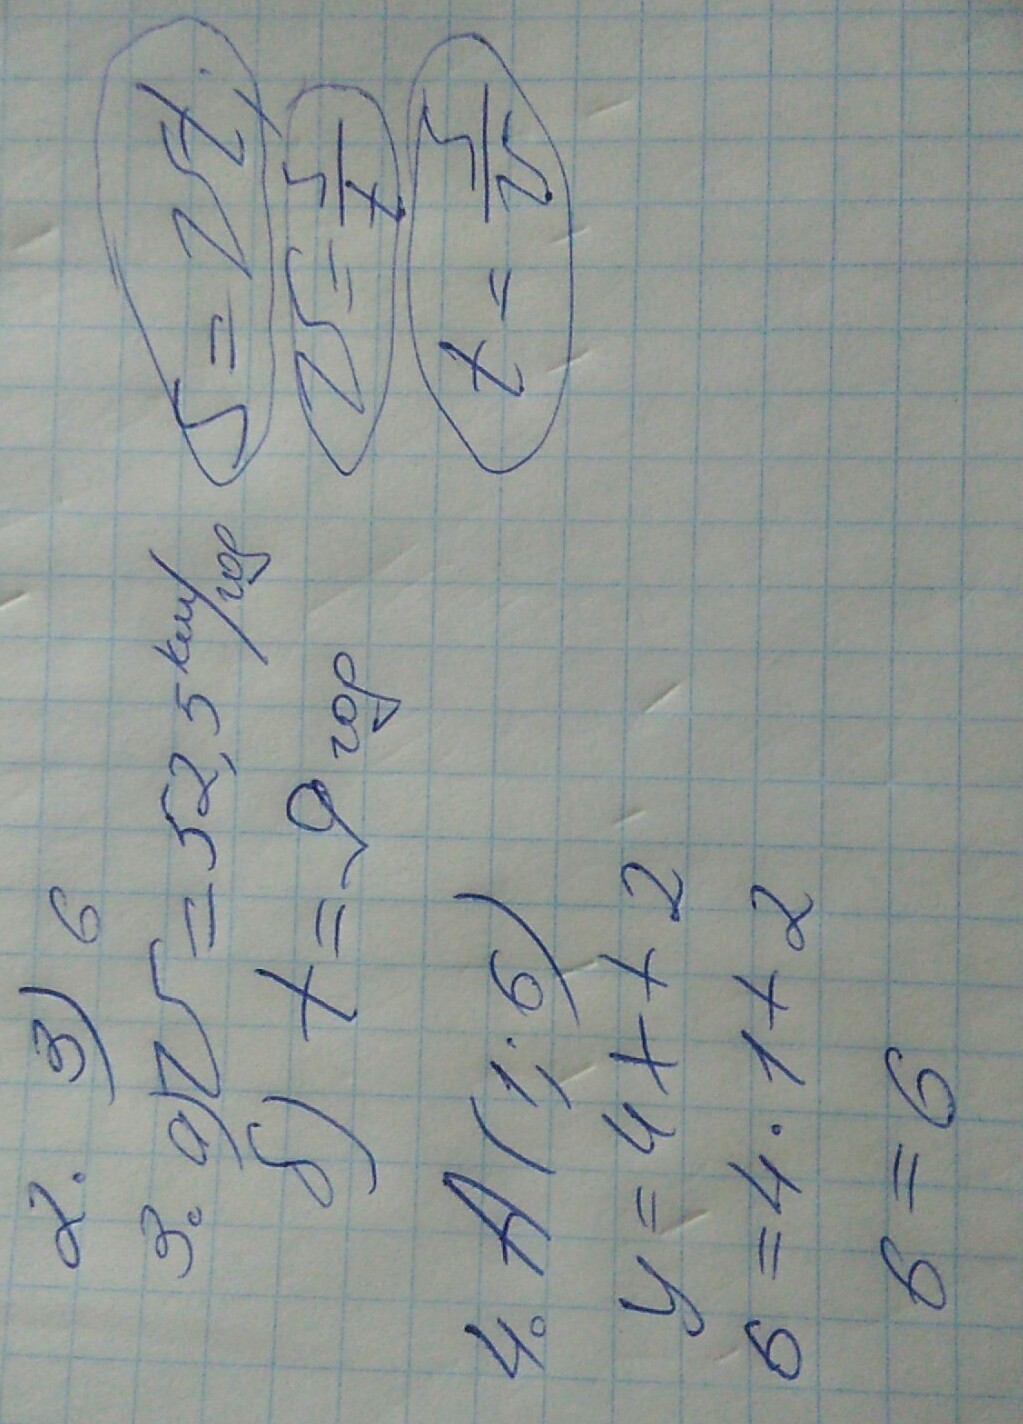 2. 3) 6
3. а) V = 52,5 км/год
б) t = 9 год
S = Vt.
V = S/t
t = S/V
4. A(1; 6)
y = 4x + 2
6 = 4 · 1 + 2
6 = 6